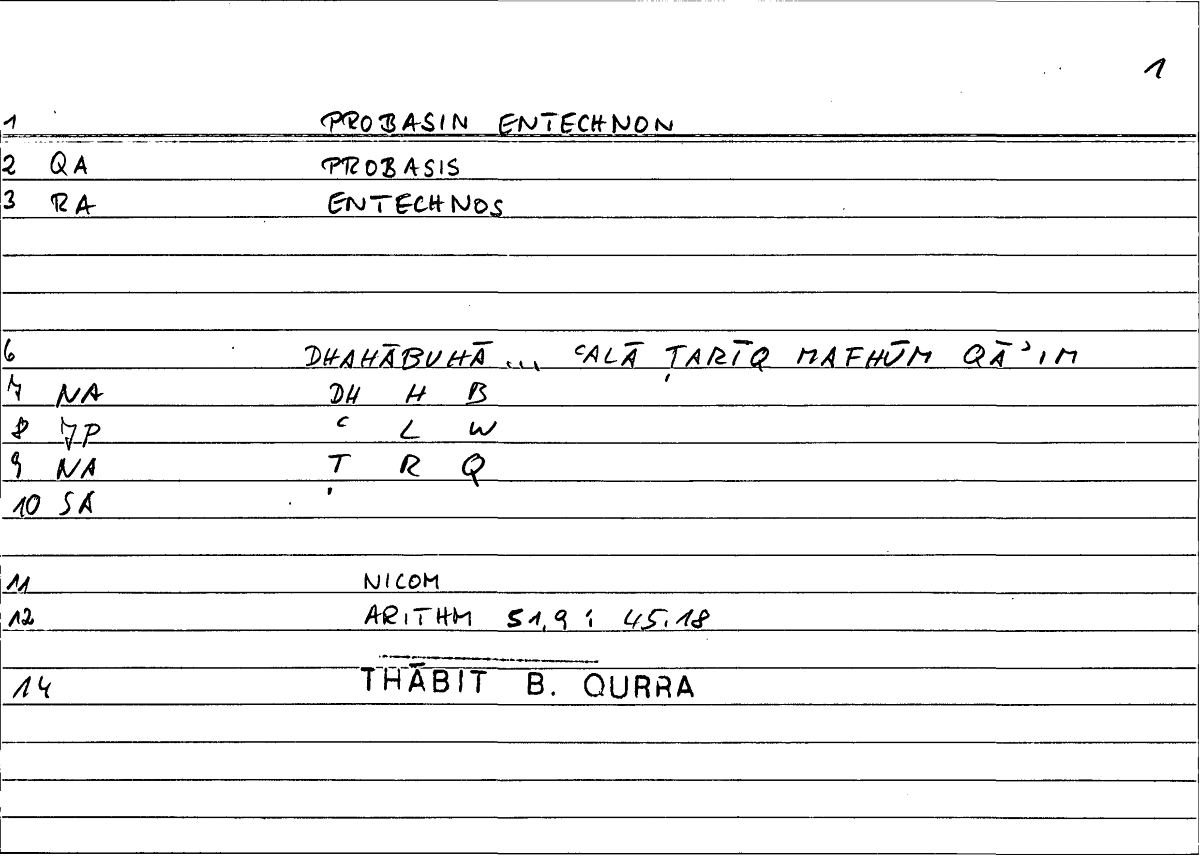 1
1 PROBASIN ENTECHNON
2 QA PROBASIS
3 RA ENTECHNOS
6 DHAHĀBUHĀ ... ʿALĀ ṬARĪQ MAFHŪM QĀʾIM
7 NA DH H B
8 JP ʿ L W
9 NA Ṭ R Q
10 SA
11 NICOM
12 ARITHM 51,9 ; 45.18
14 THĀBIT B. QURRA